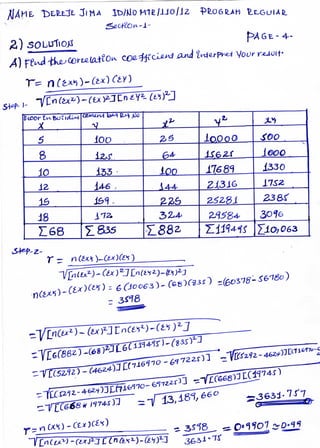 NAME DEREJE JIMA ID/NO MTR/110/12 PROGRAM REGULAR
Section-1-
PAGE-4-
2) SOLUTION
A) Find the correlation coefficient and interpret Your result.
r = n(Σxy)-(Σx)(Σy)
Step 1- √[n(Σx²)-(Σx)²][nΣy²-(Σy)²]
Floor in Building Cement
X Y x² y² xy
5 100 25 10,000 500
8 125 64 15625 1000
10 133 100 17689 1330
12 146 144 21316 1752
15 159 225 25281 2385
18 172 324 29584 3096
Σ68 Σ835 Σ882 Σ119495 Σ10,063
Step-2-
r = n(Σxy)-(Σx)(Σy)
√[n(Σx²)-(Σx)²][n(Σy²)-(Σy)²]
n(Σxy)-(Σx)(Σy) = 6(10063)-(68)(835) =(60378-56780)
= 3598
=√[n(Σx²)-(Σx)²][n(Σy²)-(Σy)²]
=√[6(882)-(68)²][6(119495)-(835)²]
=√[(5292)-(4624)][(716970-697225)]
=√[(5292-4624)][(716970-697225)] =√[(668)][(19745)]
=√[(668 x 19745)] =√13,189,660 =3631.757
r = n(Σxy)-(Σx)(Σy) = 3598 = 0.9907 ≈ 0.99
√[n(Σx²)-(Σx)²][n(Σy²)-(Σy)²] 3631.75